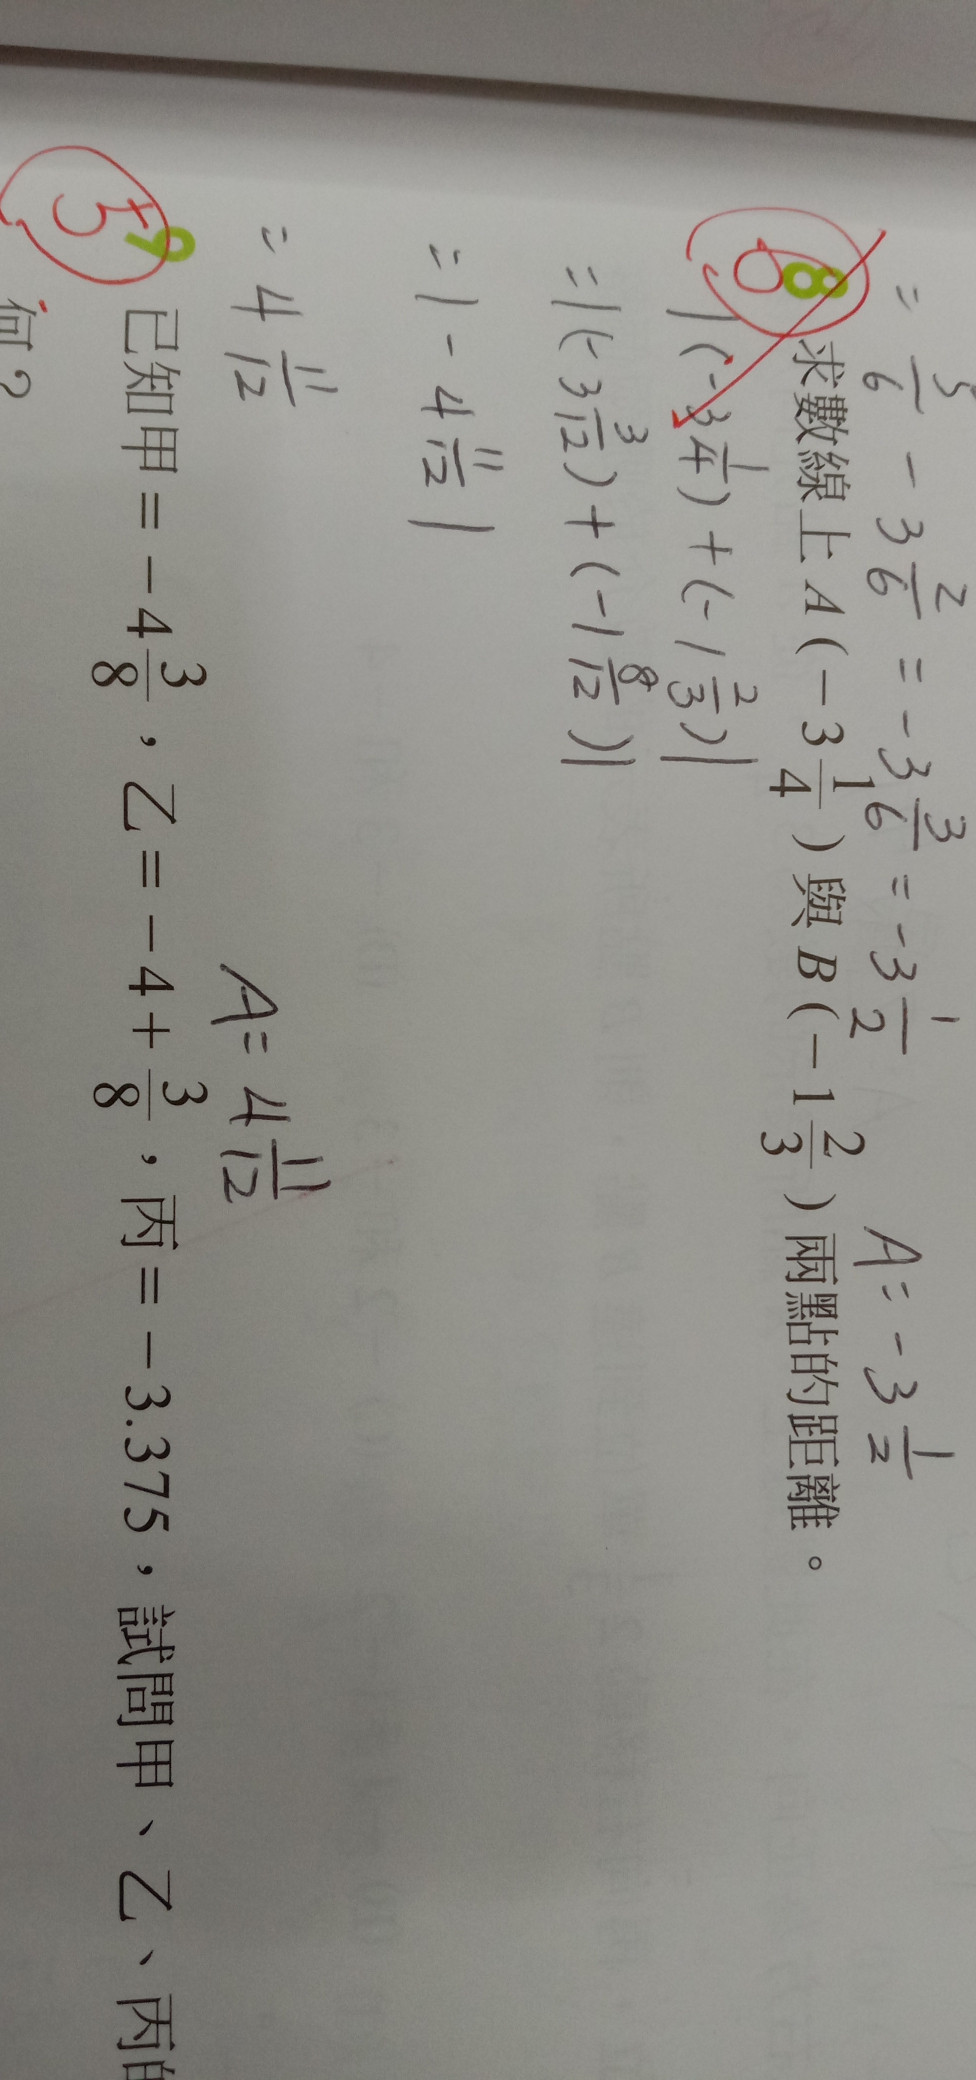 = 5/6 - 3 2/6 = -3 3/6 = -3 1/2 A = -3 1/2
8 求數線上 A(-3 1/4)與 B(-1 2/3)兩點的距離。
|(-3 1/4)+(-1 2/3)|
=|(-3 3/12)+(-1 8/12)|
=|-4 11/12|
=4 11/12 A=4 11/12
9 已知甲=-4 3/8,乙=-4+3/8,丙=-3.375,試問甲、乙、丙的
何?